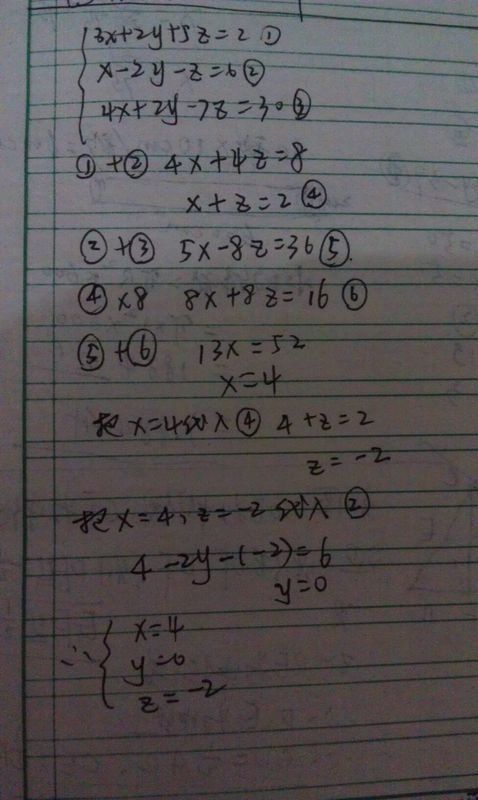 3x+2y+5z=2 ①
x-2y-z=6 ②
4x+2y-7z=30 ③
①+② 4x+4z=8
x+z=2 ④
②+③ 5x-8z=36 ⑤.
④×8 8x+8z=16 ⑥
⑤+⑥ 13x=52
x=4
把x=4代入④ 4+z=2
z=-2
把x=4,z=-2代入②
4-2y-(-2)=6
y=0
∴ x=4
y=0
z=-2